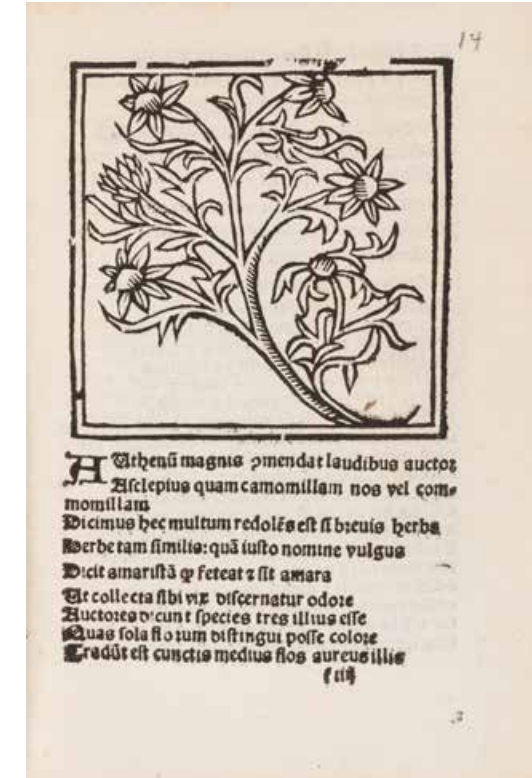 14
AUthenũ magnis ꝯmendat laudibus auctoꝛ
Asclepius quam camomillam nos vel com-
momillam
Dicimus hec multum redolẽs est ſʒ breuis herba
Herbe tam similis: quã iusto nomine vulgus
Dicit amaristã ꝙ feteat ⁊ sit amara
Ut collecta sibi vix discernatur odore
Auctores dicunt species tres illius esse
Quas sola florum distingui posse colore
Tradũt est cunctis medius flos aureus illis